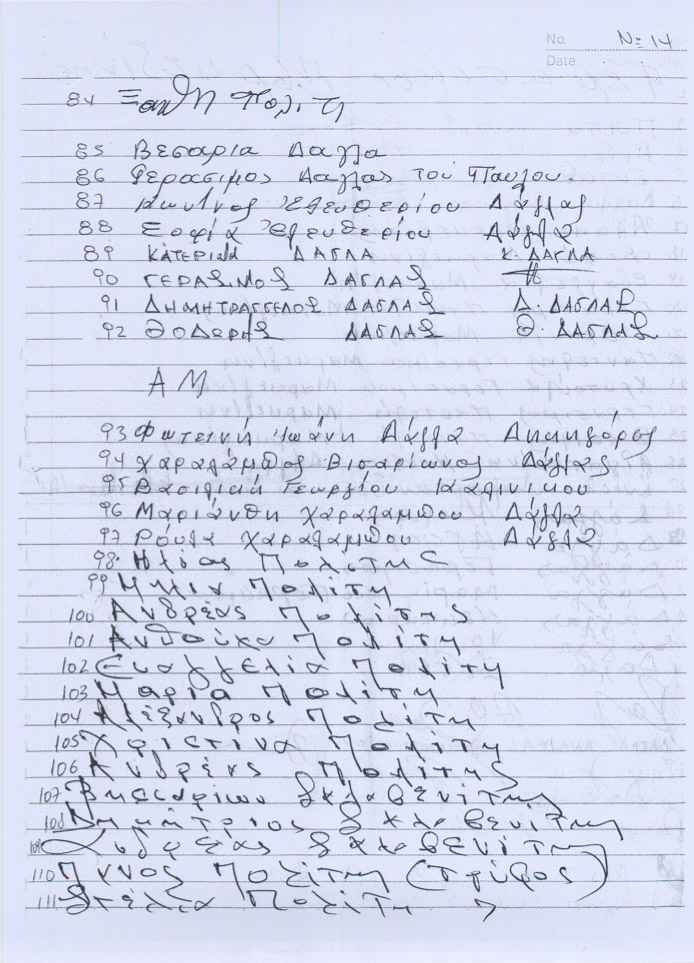 No. Nº 14
Date
84 Ξανθη Πολιτη
85 Βεσαρια Δαγλα
86 Γερασιμος Δαγλας του Παυλου
87 Κων/νος Ελευθερίου Δάγλας
88 Σοφία Ελευθερίου Δάγλα
89 ΚΑΤΕΡΙΝΑ ΔΑΓΛΑ Κ. ΔΑΓΛΑ
90 ΓΕΡΑΣΙΜΟΣ ΔΑΓΛΑΣ
91 ΔΗΜΗΤΡΑΓΓΕΛΟΣ ΔΑΓΛΑΣ Δ. ΔΑΓΛΑΣ
92 ΘΟΔΩΡΗΣ ΔΑΓΛΑΣ Θ. ΔΑΓΛΑΣ
Α Μ
93 Φωτεινή Ιωάνη Δάγλα
94 Χαραλάμπος Βισαρίωνος Δάγλας
95 Βασιλική Γεωργίου Καλινικου
96 Μαριάνθη Χαραλαμπου Δάγλα
97 Ρούλα Χαραλαμπου Δάγλα
98 Ηλίας Πολιτης
99 Πολίτη
100 Ανδρέας Πολίτης
101 Ανθούλα Πολίτη
102 Ευαγγελία Πολίτη
103 Μαρία Πολίτη
104 Αλέξανδρος Πολίτη
105 Χριστινα Πολίτη
106 Ανδρέας Πολίτης
107 Βησσαρίων Σκλαβενίτης
108 Δημήτριος Σκλαβενίτης
109 Ανδρέας Σκλαβενίτης
110 Πολίτη
111 Στέλλα Πολίτη